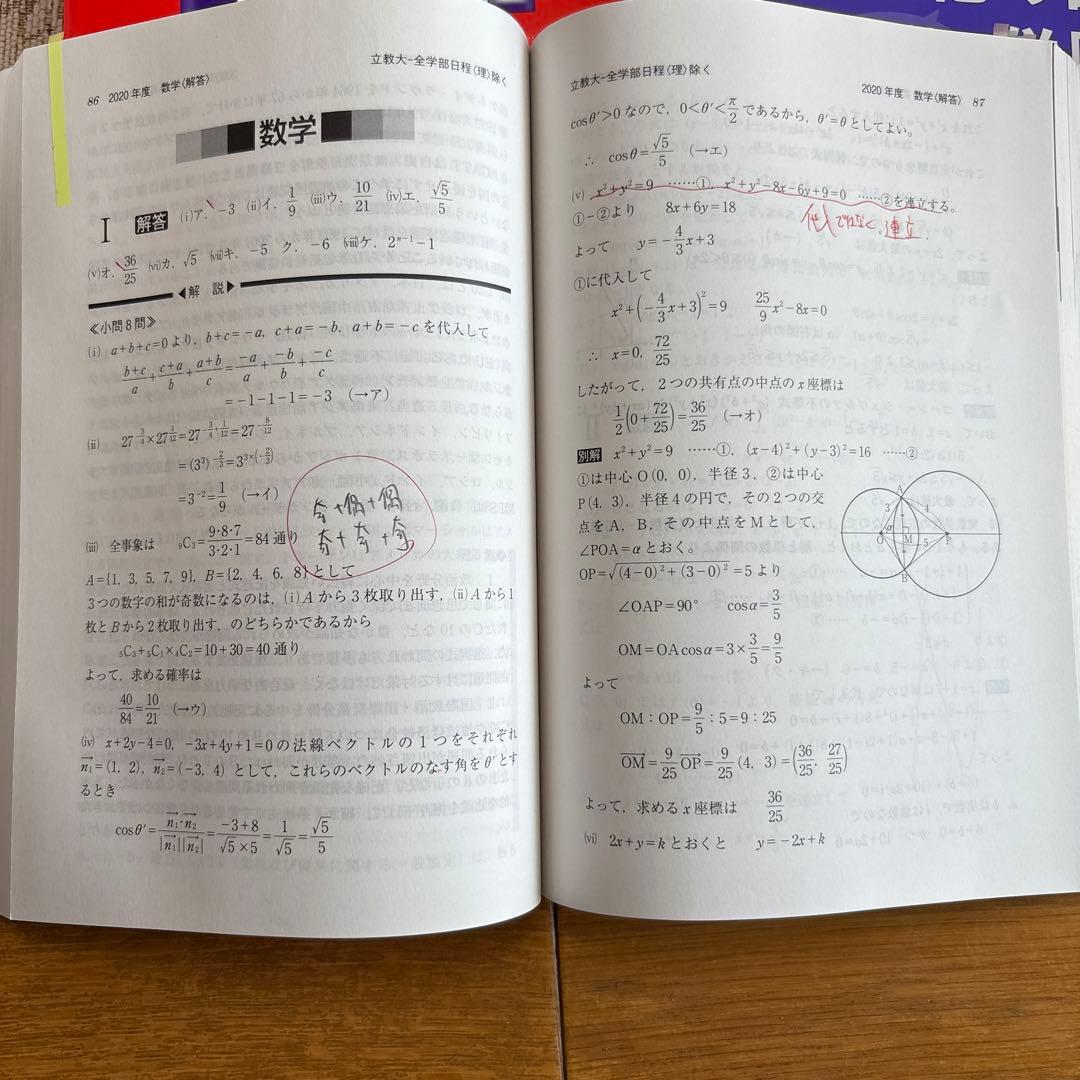 86 2020年度 数学〈解答〉
立教大-全学部日程〈理〉除く
数学
I 解答 (i)ア. -3 (ii)イ. 1/9 (iii)ウ. 10/21 (iv)エ. √5/5
(v)オ. 36/25 (vi)カ. √5 (vii)キ. -5 ク. -6 (viii)ケ. 2^{n-1}-1
◀解 説▶
≪小問8問≫
(i) a+b+c=0より, b+c=-a, c+a=-b, a+b=-cを代入して
(b+c)/a+(c+a)/b+(a+b)/c=(-a)/a+(-b)/b+(-c)/c
=-1-1-1=-3 (→ア)
(ii) 27^{-3/4}×27^{1/12}=27^{-3/4+1/12}=27^{-8/12}
=(3³)^{-2/3}=3^{3×(-2/3)}
=3^{-2}=1/9 (→イ)
奇+偶+偶
奇+奇+奇
(iii) 全事象は ₉C₃=9・8・7/3・2・1=84通り
A={1, 3, 5, 7, 9}, B={2, 4, 6, 8}として
3つの数字の和が奇数になるのは, (i)Aから3枚取り出す, (ii)Aから1
枚とBから2枚取り出す, のどちらかであるから
₅C₃+₅C₁×₄C₂=10+30=40通り
よって, 求める確率は
40/84=10/21 (→ウ)
(iv) x+2y-4=0, -3x+4y+1=0の法線ベクトルの1つをそれぞれ
n₁=(1, 2), n₂=(-3, 4)として, これらのベクトルのなす角をθ′とす
るとき
cosθ′=n₁・n₂/|n₁||n₂|=(-3+8)/(√5×5)=1/√5=√5/5
立教大-全学部日程〈理〉除く
2020年度 数学〈解答〉 87
cosθ′>0なので, 0<θ′<π/2であるから, θ′=θとしてよい。
∴ cosθ=√5/5 (→エ)
(v) x²+y²=9 ……①, x²+y²-8x-6y+9=0 ……②を連立する。
代入ではなく, 連立.
①-②より 8x+6y=18
よって y=-4/3x+3
①に代入して
x²+(-4/3x+3)²=9 25/9x²-8x=0
∴ x=0, 72/25
したがって, 2つの共有点の中点のx座標は
1/2(0+72/25)=36/25 (→オ)
別解 x²+y²=9 ……①, (x-4)²+(y-3)²=16 ……②
①は中心O(0, 0), 半径3, ②は中心
P(4, 3), 半径4の円で, その2つの交
点をA, B, その中点をMとして,
∠POA=αとおく。
A
3
4
O
α
M
P
5
B
OP=√((4-0)²+(3-0)²)=5より
∠OAP=90° cosα=3/5
OM=OAcosα=3×3/5=9/5
よって
OM:OP=9/5:5=9:25
OM=9/25OP=9/25(4, 3)=(36/25, 27/25)
よって, 求めるx座標は 36/25
(vi) 2x+y=kとおくと y=-2x+k